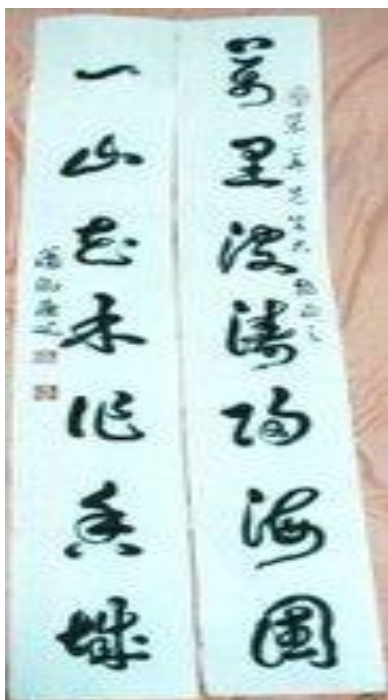 萬里波濤歸海國
一山花木作香城